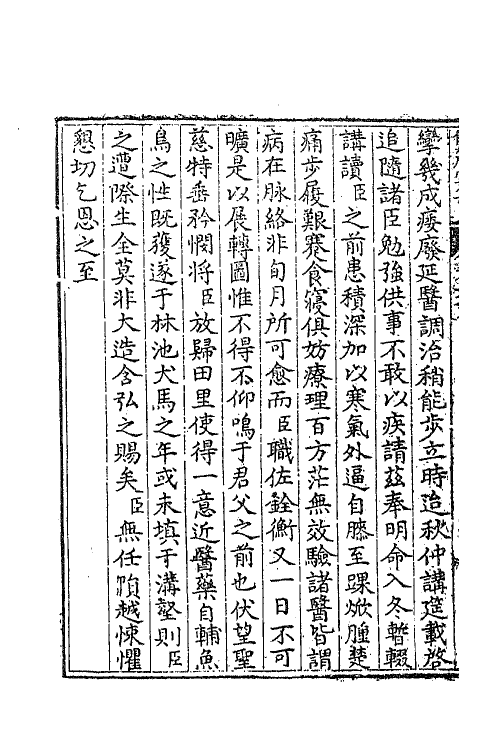 攣幾成痿廢延醫調治稍能步立時迨秋仲講筵載啓
追隨諸臣勉強供事不敢以疾請茲奉明命入冬暫輟
講讀臣之前患積深加以寒氣外逼自膝至踝焮腫楚
痛步履艱蹇食寢俱妨療理百方茫無效驗諸醫皆謂
病在脉絡非旬月所可愈而臣職佐銓衡又一日不可
曠是以展轉圖惟不得不仰鳴于君父之前也伏望聖
慈特垂矜憫將臣放歸田里使得一意近醫藥自輔魚
鳥之性既獲遂于林池犬馬之年或未填于溝壑則臣
之遭際生全莫非大造含弘之賜矣臣無任隕越悚懼
懇切乞恩之至